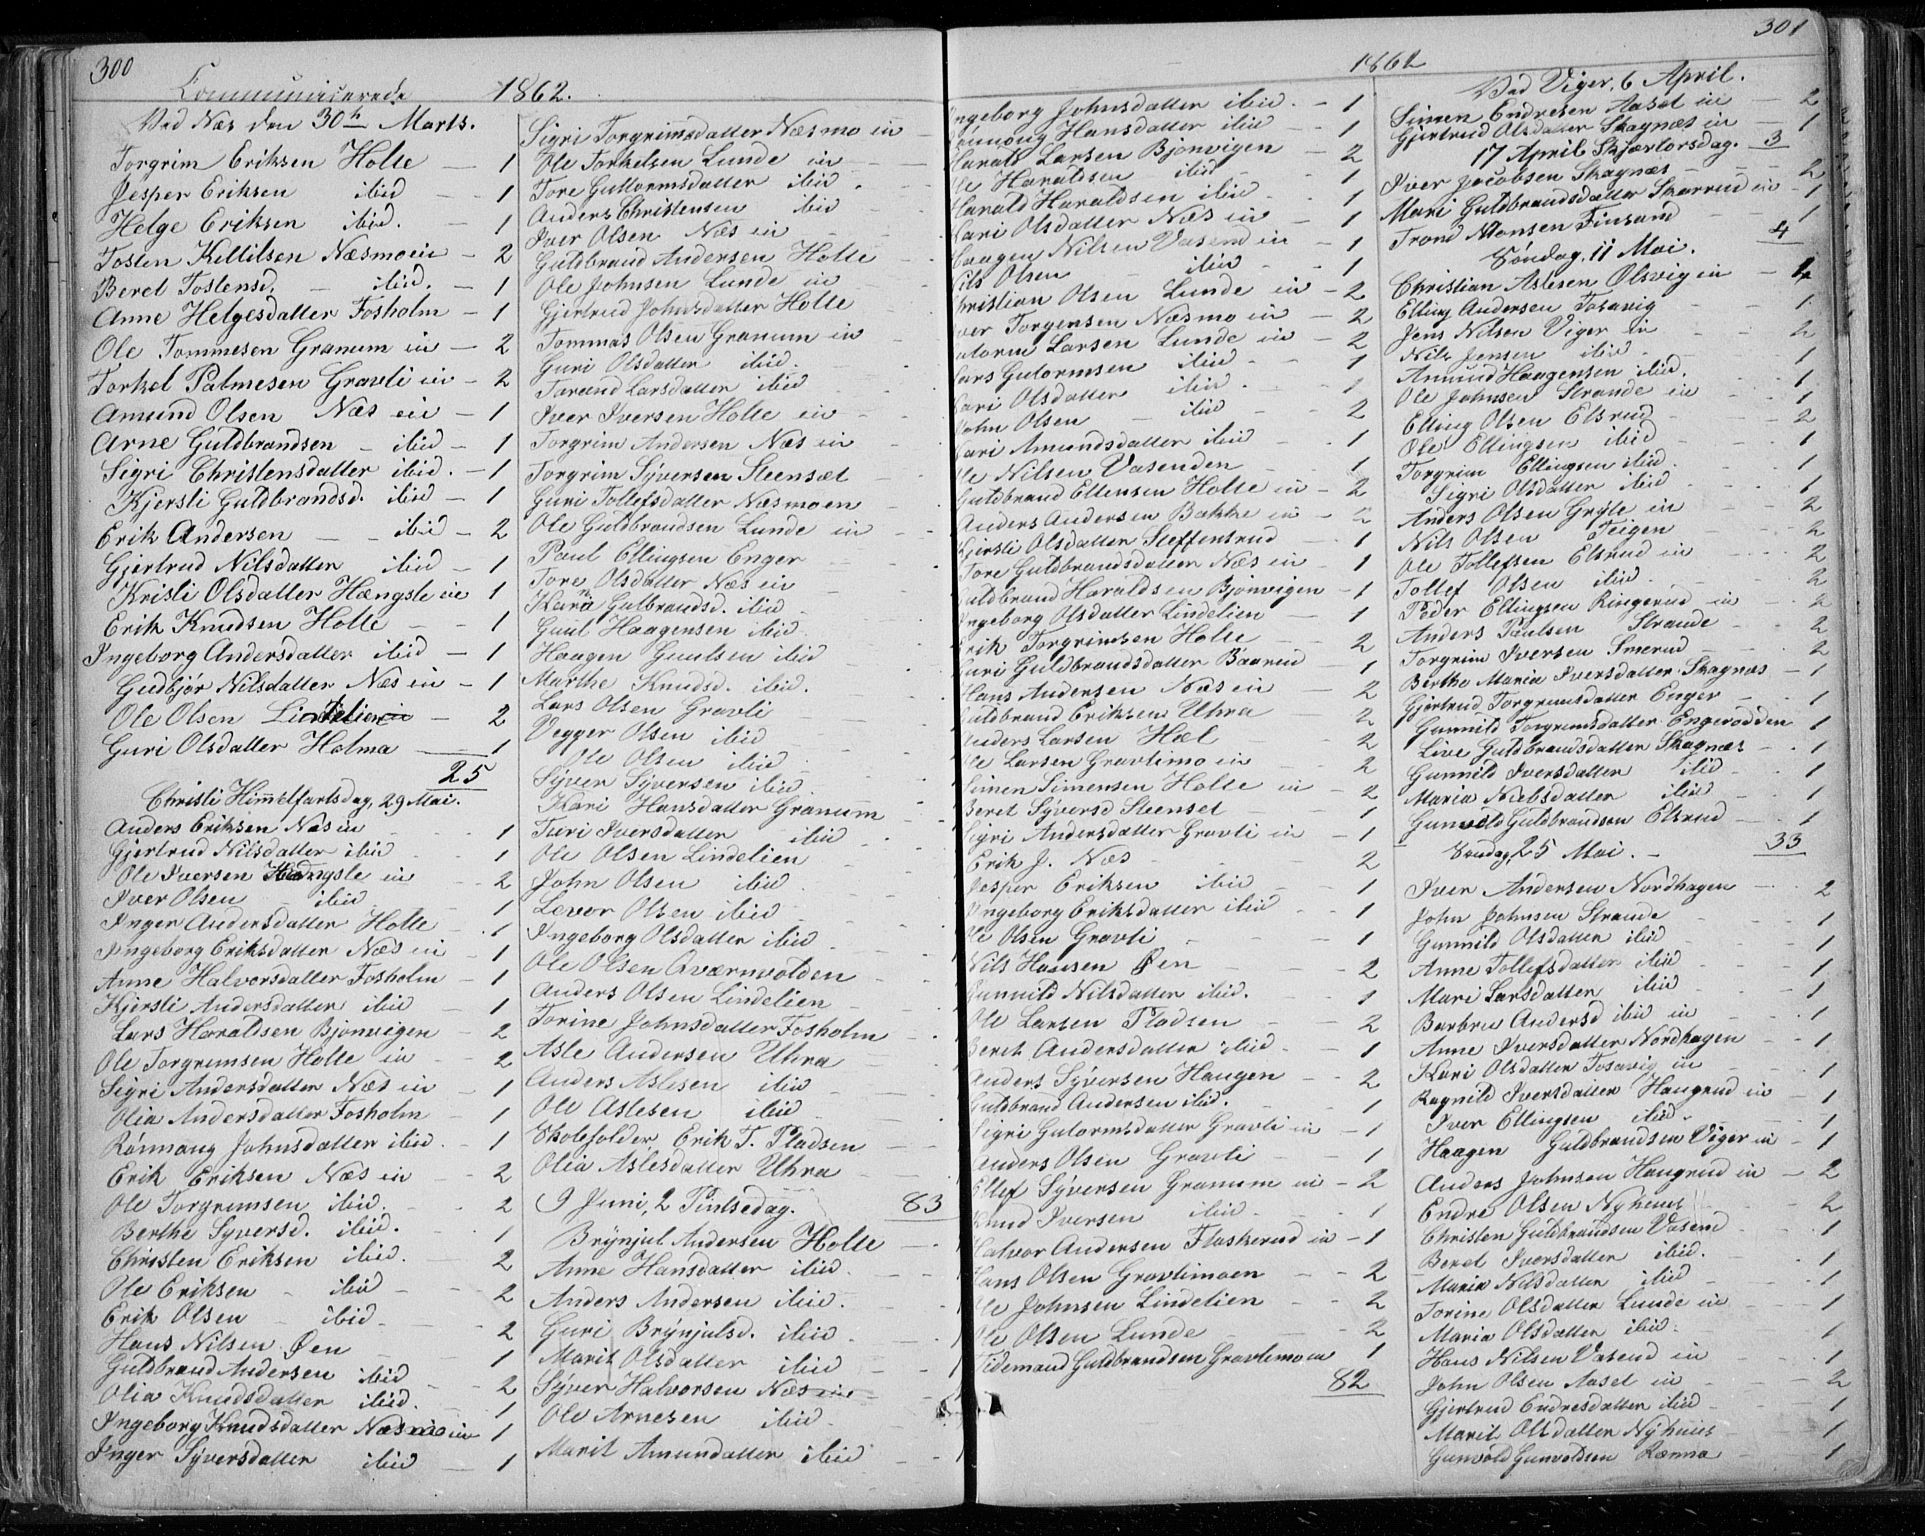 300
Communicerede 1862.
Ved Næs den 30te Marts.
Torgrim Eriksen Holte — 1
Jesper Eriksen ibid — 1
Helge Eriksen ibid. — 1
Tosten Kittilsen Næsmoein — 2
Beret Tostensd. — ibid. — 1
Anne Helgesdatter Fosholm — 1
Ole Tommesen Granum ein — 2
Torkel Palmesen Gravli ein — 2
Amund Olsen Næs ein — 1
Arne Guldbrandsen — ibid — 1
Sigri Christensdatter ibid. — 1
Kjersti Guldbrandsd. ibid — 1
Erik Andersen — ibid — 2
Gjertrud Nilsdatter ibid — 1
Kristi Olsdatter Hængsle ein 1
Erik Knudsen Holte — 1
Ingeborg Andersdatter ibid — 1
Gudbjør Nilsdatter Næs ein — 1
Ole Olsen Lindelien — 2
Guri Olsdatter Holma — 1
25
Christi Himmelfartsdag, 29 Mai.
Anders Eriksen Næs ein — 1
Gjertrud Nilsdatter ibid — 1
Ole Iversen Hængsle ein — 2
Iver Olsen ibid — 1
Inger Andersdatter Holte — 1
Ingeborg Eriksdatter Næs ein — 1
Anne Halvorsdatter Fosholm — 1
Kjersti Andersdatter ibid — 1
Lars Haraldsen Bjonvigen — 2
Ole Torgrimsen Holte ein — 2
Sigri Andersdatter Næs ein — 1
Olia Andersdatter Fosholm — 1
Rønnaug Johnsdatter ibid. — 1
Erik Eriksen Næs ein — 2
Ole Torgrimsen ibid. — 2
Berthe Syversd. ibid. — 1
Christen Eriksen ibid. — 2
Ole Eriksen — ibid — 2
Erik Olsen — ibid — 2
Hans Nilsen Øen — 1
Guldbrand Andersen ibid — 2
Olia Knudsdatter ibid. — 1
Ingeborg Knudsdatter Næsmoein 1
Inger Syversdatter ibid — 1
Sigri Torgrimsdatter Næsmo ein —
Ole Torkelsen Lunde ein —
Tore Guttormsdatter ibid. —
Anders Christensen ibid —
Iver Olsen Næs ein —
Guldbrand Andersen Holte —
Ole Johnsen Lunde ein —
Gjertrud Johnsdatter Holte —
Tommas Olsen Granum ein —
Guri Olsdatter ibid. —
Tarand Larsdatter ibid —
Iver Iversen Holte ein —
Torgrim Andersen Næs ein —
Torgrim Syversen Steensæt —
Guri Tollefsdatter Næsmoen —
Ole Guldbrandsen Lunde ein —
Paul Ellingsen Enger —
Tore Olsdatter Næs ein —
Kari Gulbrandsd. ibid —
Guul Haagensen ibid —
Haagen Guulsen ibid —
Marthe Knudsd. ibid. —
Lars Olsen Gravli —
Vegger Olsen ibid —
Ole Olsen ibid —
Syver Syversen ibid —
Kari Hansdatter Granum —
Turi Iversdatter ibid —
Ole Olsen Lindelien —
John Olsen ibid —
Levor Olsen ibid —
Ingeborg Olsdatter ibid —
Ole Olsen Qværnvolden —
Anders Olsen Lindelien —
Torine Johnsdatter Fosholm —
Asle Andersen Uhra —
Anders Aslesen ibid —
Ole Aslesen ibid —
Skoleholder Erik T. Pladsen —
Olia Aslesdatter Uhra
83
9 Juni, 2 Pintsedag.
Brynjul Andersen Holte —
Anne Hansdatter ibid. —
Anders Andersen ibid. — 1
Guri Brynjulsd. ibid. — 1
Marit Olsdatter ibid — 1
Syver Halvorsen Næs ein — 1
Ole Arnesen ibid. —
Marit Amundatter ibid — 1
301
1862
ngeborg Johnsdatter ibid. — 1
ønnoug Hansdatter ibid — 1
Harald Larsen Bjonvigen — 2
Ole Haraldsen ibid — 1
Harald Haraldsen ibid — 1
Kari Olsdatter Næs ein — 1
Haagen Nilsen Vasend ein — 1
Nils Olsen — ibid — 1
Christian Olsen Lunde ein — 2
Iver Torgersen Næsmo ein — 2
utorm Larsen Lunde ein — 2
Lars Gutormsen ibid — 1
Kari Olsdatter ibid. — 1
John Olsen — ibid — 2
Kari Amundsdatter ibid — 1
Ole Nilsen Vasenden — 1
Guldbrand Ellensen Holte ein — 2
Anders Andersen Bakke ein — 2
Kjersti Olsdatter Steffensrud — 1
Tore Guldbrandsdatter Næs ein — 1
uldbrand Haraldsen Bjonvigen — 1
Ingeborg Olsdatter Lindelien — 1
Erik Torgrimsen Holte — 2
Guri Guldbrandsdatter Baarud — 1
Hans Andersen Næs ein — 2
Guldbrand Eriksen Uhra — 2
Anders Larsen Hæl — 2
Ole Larsen Gravlimo ein — 2
Simen Simensen Holte ein — 2
Beret Syversd Steenset — 1
Sigri Andersdatter Gravli ein — 1
Erik J. Næs — 2
Jesper Eriksen ibid — 1
Ingeborg Eriksdatter ibid — 1
Ole Olsen Gravli — 1
Nils Hansen Øen — 2
Gunnild Nilsdatter ibid. — 1
Ole Larsen Pladsen — 2
Beret Andersdatter ibid — 1
Anders Syversen Haugen — 2
Guldbrand Andersen ibid. — 1
Sigri Gutormsdatter Gravli ein — 1
Anders Olsen Gravli — 1
Ellef Syversen Granum ein — 2
Knud Iversen ibid. — 1
Halvor Andersen Flaskerud ein — 1
Hans Olsen Gravlimoen — 2
Ole Johnsen Lindelien — 2
Ole Olsen Lunde — 2
Tidemand Guldbrandsen Gravlimoein 1
82
Ved Viger, 6 April.
Simen Endresen Aaset ein — 2
Gjertrud Olsdatter Skagnæs ein — 1
3
17 April Skjærtorsdag.
Iver Jacobsen Skagnæs — 2
Mari Guldbrandsdatter Skarrud ein — 1
Trond Monsen Finsand — 1
4
Søndag, 11 Mai.
Christian Aslesen Olsvig ein — 2
Elling Andersen Tosavig — 1
Jens Nilsen Viger ein — 2
Nils Jensen ibid — 1
Amund Haagensen ibid. — 1
Ole Johnsen Strande ein — 1
Elling Olsen Elsrud — 2
Ole Ellingsen ibid — 1
Torgrim Ellingsen ibid. — 1
Sigri Olsdatter ibid — 1
Anders Olsen Gryte ein — 2
Nils Olsen Teigen — 2
Ole Tollefsen Elsrud ein — 2
Tollef Olsen ibid. — 2
Peder Ellingsen Ringerud ein — 2
Anders Paulsen Strande — 2
Torgrim Iversen Smerud — 2
Berthe Maria Iversdatter Skagnæs — 1
Gjertrud Torgrimsdatter Enger — 1
Gunnild Torgrimsdatter Engerodden 1
Live Guldbrandsdatter Skagnæs — 1
Gunnild Iversdatter ibid — 1
Maria Nielsdatter ibid — 1
Gunvild Guldbrandsen Elsrud — 1
33
Søndag 25 Mai. —
Iver Andersen Nordhagen — 2
John Johnsen Strande — 1
Gunnild Olsdatter ibid — 1
Anne Tollefsdatter ibid — 1
Mari Larsdatter ibid — 1
Barbru Andersd ibid ein — 1
Anne Iversdatter Nordhagen — 1
Kari Olsdatter Tosavig ein — 1
Ragnild Iversdatter Haugrud ein — 1
Iver Ellingsen ibid. — 1
Haagen Guldbrandsen Viger ein — 1
Anders Johnsen Haugrud ein — 2
Endre Olsen Nyhuus — 2
Christen Guldbrandsen Vasend — 1
Beret Iversdatter ibid. — 1
Maria Nilsdatter ibid — 1
Torine Olsdatter Lunde ein — 1
Maria Olsdatter ibid. — 1
Hans Nilsen Vasend ein — 1
John Olsen Aaset ein — 2
Gjertrud Endresdatter ibid — 1
Marit Olsdatter Nyhuus — 1
Gunvold Gunvoldsen Ræma — 1